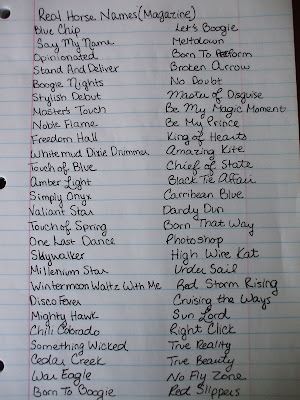 Real Horse Names (Magazine)
Blue Chip
Say My Name
Opinionated
Stand And Deliver
Boogie Nights
Stylish Debut
Master's Touch
Noble Flame
Freedom Hall
Whitemud Dixie Drummer
Touch of Blue
Amber Light
Simply Onyx
Valiant Star
Touch of Spring
One Last Dance
Skywalker
Millenium Star
Wintermoon Waltz With Me
Disco Fever
Mighty Hawk
Chili Colorado
Something Wicked
Cedar Creek
War Eagle
Born To Boogie
Let's Boogie
Meltdown
Born To Perform
Broken Arrow
No Doubt
Master of Disguise
Be My Magic Moment
Be My Prince
King of Hearts
Amazing Kite
Chief of State
Black Tie Affair
Carribean Blue
Dandy Dun
Born That Way
Photoshop
High Wire Kat
Under Sail
Red Storm Rising
Cruising the Ways
Sun Lord
Right Click
True Reality
True Beauty
No Fly Zone
Red Slippers